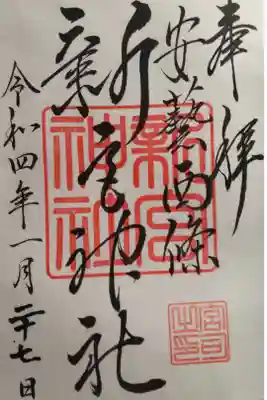 奉拝
安藝西條
新宮神社
令和四年一月二十七日
新宮
神社
宮司
之印